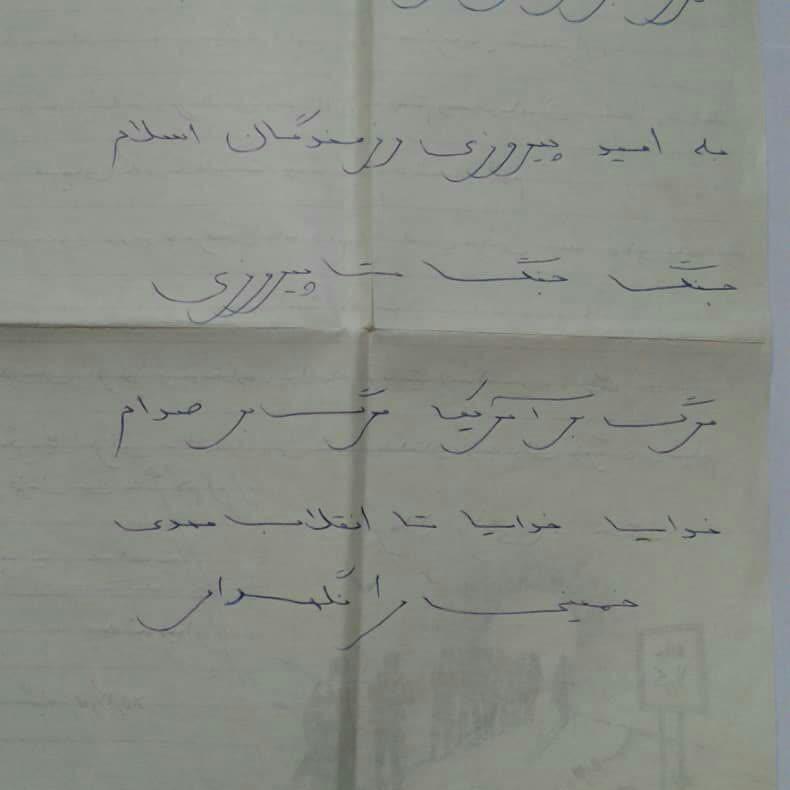 به امید پیروزی رزمندگان اسلام
جنگ جنگ تا پیروزی
مرگ بر آمریکا مرگ بر صدام
خدایا خدایا تا انقلاب مهدی
خمینی را نگهدار